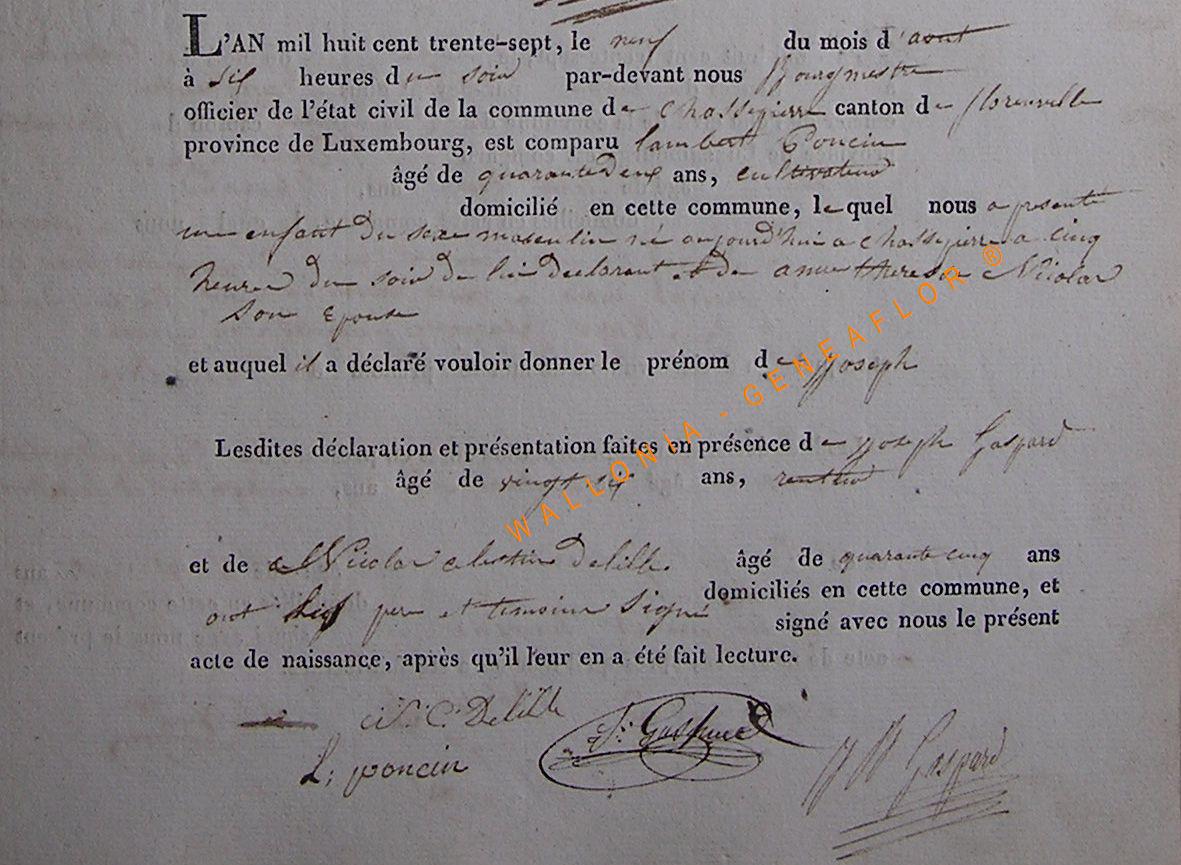 L'AN mil huit cent trente-sept, le neuf du mois d'aout
à six heures du soir par-devant nous Bourgmestre
officier de l'état civil de la commune de Chassepierre canton de florenville
province de Luxembourg, est comparu Lambert Poncin
âgé de quarante deux ans, cultivateur
domicilié en cette commune, lequel nous a presenté
un enfant du sexe masculin né aujourd'hui a chassepierre a cinq
heures du soir de lui declarant et de anne therese Nicolas
Son Epouse
et auquel il a déclaré vouloir donner le prénom de Joseph
Lesdites déclaration et présentation faites en présence de Joseph Gaspard
âgé de vingt six ans, rentier
et de Nicolas Delille âgé de quarante cinq ans
domiciliés en cette commune, et
ont pere et temoins Signé
signé avec nous le présent
acte de naissance, après qu'il leur en a été fait lecture.
N. C. Delille
J. Gaspard
L. poncin
Gaspard
WALLONIA - GENEAFLOR ®